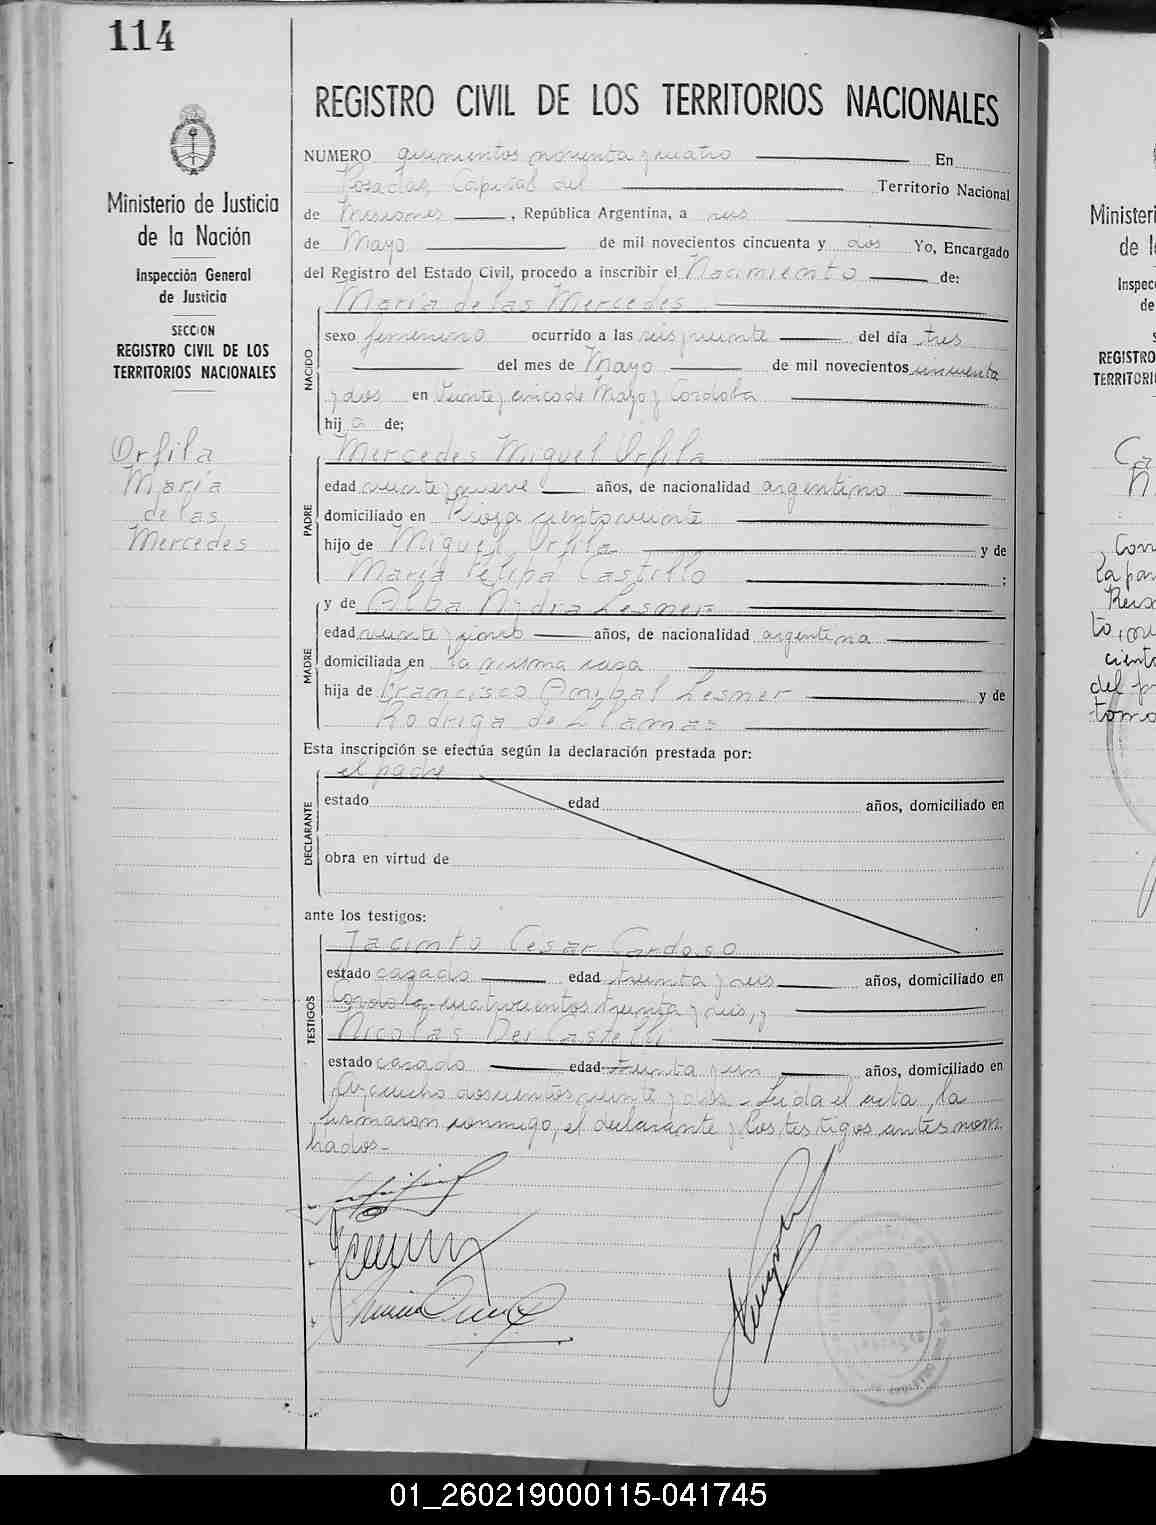 114
Ministerio de Justicia
de la Nación
Inspección General
de Justicia
SECCION
REGISTRO CIVIL DE LOS
TERRITORIOS NACIONALES
Orfila
María
de las
Mercedes
REGISTRO CIVIL DE LOS TERRITORIOS NACIONALES
NUMERO quinientos noventa y cuatro En
Posadas, Capital del Territorio Nacional
de Misiones, República Argentina, a seis
de Mayo de mil novecientos cincuenta y dos Yo, Encargado
del Registro del Estado Civil, procedo a inscribir el Nacimiento de:
María de las Mercedes
NACIDO
sexo femenino ocurrido a las seis y veinte del día tres
del mes de Mayo de mil novecientos cincuenta
y dos en Veinte y cinco de Mayo y Cordoba
hija de:
Mercedes Miguel Orfila
PADRE
edad veinte y nueve años, de nacionalidad argentino
domiciliado en Rioja ciento veinte
hijo de Miguel Orfila y de
María Felipa Castillo;
MADRE
y de Alba Lesner
edad veinte y cinco años, de nacionalidad argentina
domiciliada en la misma casa
hija de Francisco Anibal Lesner y de
Rodriga de Llamas
Esta inscripción se efectúa según la declaración prestada por:
el padre
DECLARANTE
estado edad años, domiciliado en
obra en virtud de
ante los testigos:
Jacinto Cesar Cardoso
TESTIGOS
estado casado edad treinta y seis años, domiciliado en
Cordoba cuatrocientos treinta y seis, y
Nicolás Del Castello
estado casado edad treinta y un años, domiciliado en
Ayacucho doscientos veinte y dos - Leida el acta, la
firmaron conmigo, el declarante y los testigos antes nom
brados-
Minister
de l
Inspec
de
REGISTRO
TERRITORI
01_260219000115-041745